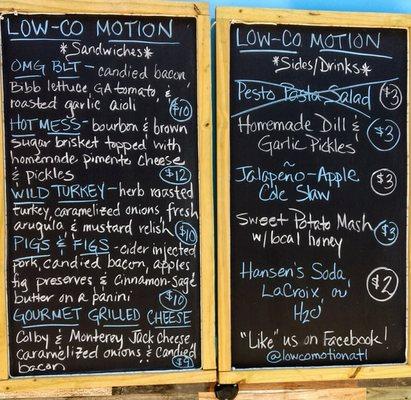 LOW-CO MOTION
*Sandwiches*
OMG BLT - candied bacon
Bibb lettuce, GA tomato, &
roasted garlic aioli $10
HOT MESS - bourbon & brown
sugar brisket topped with
homemade pimento cheese
& pickles $12
WILD TURKEY - herb roasted
turkey, caramelized onions, fresh
arugula & mustard relish $10
PIGS & FIGS - cider injected
pork, candied bacon, apples
fig preserves & cinnamon-sage
butter on a panini $10
GOURMET GRILLED CHEESE
Colby & Monterey Jack cheese,
caramelized onions & candied
bacon $9
LOW-CO MOTION
*Sides/Drinks*
Pesto Pasta Salad $3
Homemade Dill &
Garlic Pickles $3
Jalapeño-Apple
Cole Slaw $3
Sweet Potato Mash
w/local honey $3
Hansen's Soda
LaCroix, or
H2O $2
"Like" us on Facebook!
@lowcomotionatl